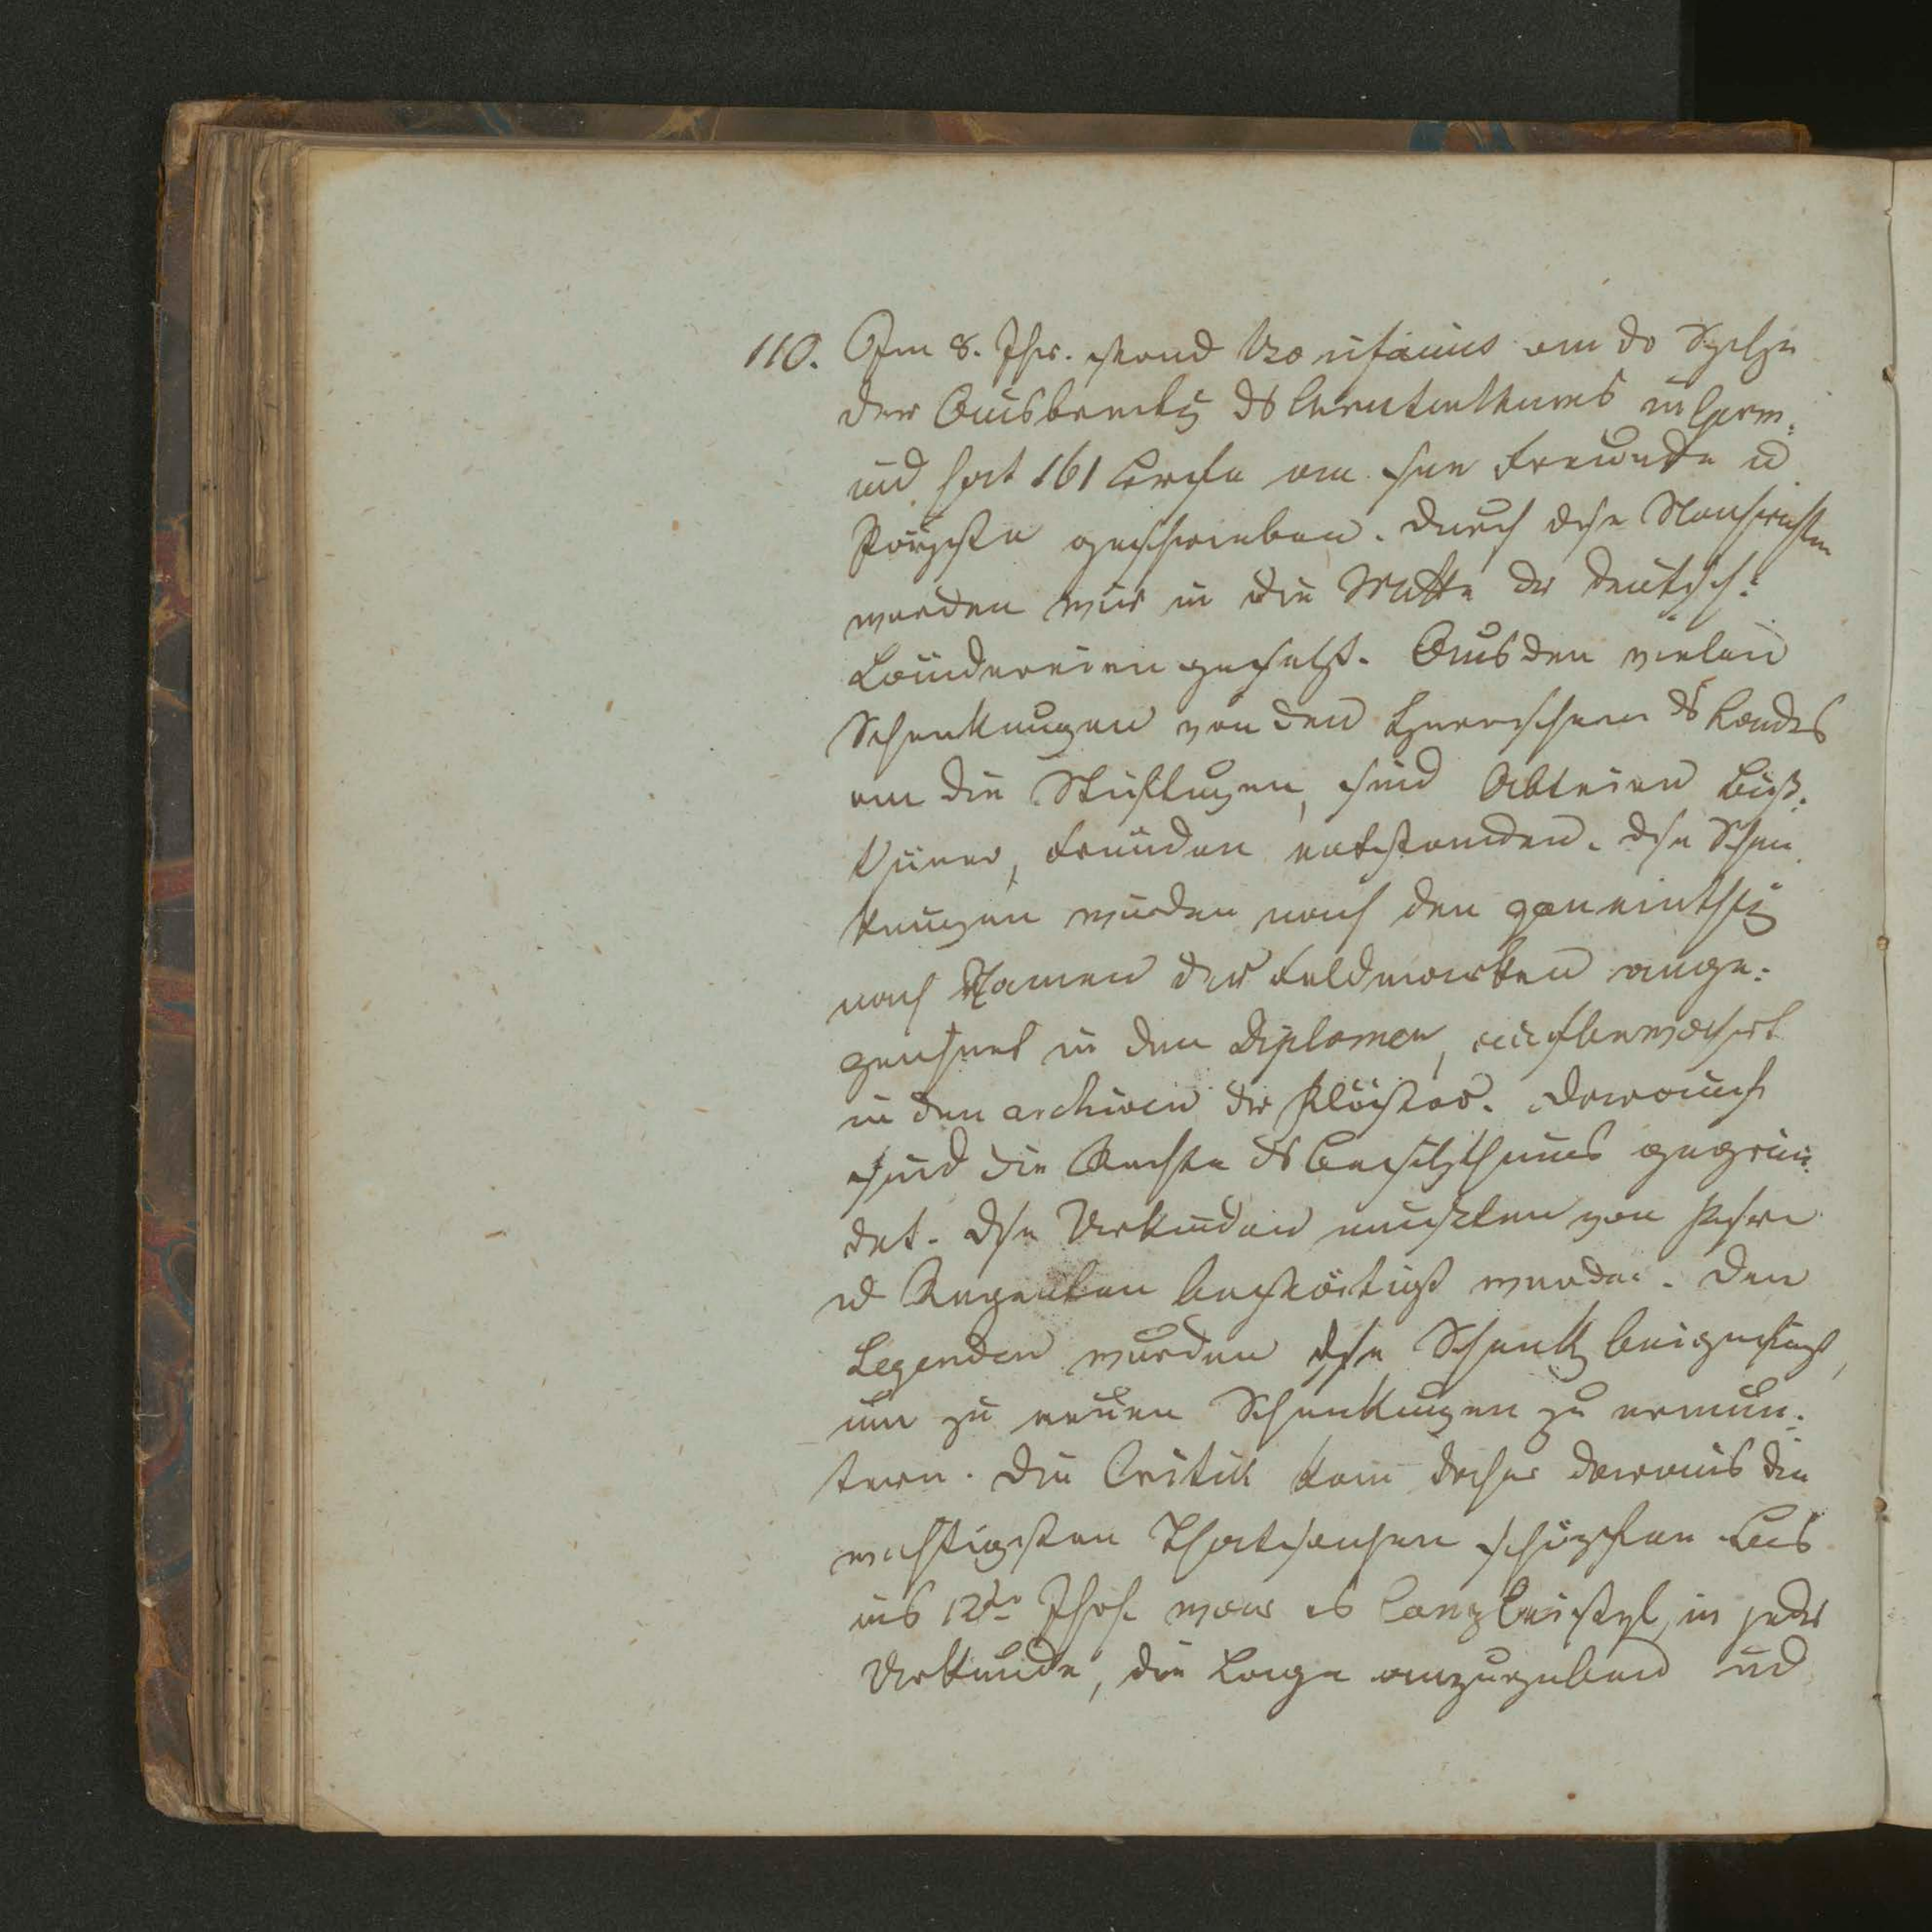 110. Im 8. Jhr. stand Bonifacius an dr Spitze
der Ausbreitg ds Christenthumes in Germ:
und hat 161 Briefe an sne Freunde u
Päpste geschrieben. Durch dise Nachrichten
werden wir in die Mitte dr deutsch:
Ländereien gesetzt. Aus den vielen
Schenkungen von den Herrschern ds Landes
an die Stiftungen, sind Abteien Biß:
thümer, Pfründen entstanden. Dse Schen
kungen wurden nach den
nach Namen der Feldmarken ange:
zeichnet in den Diplomen, aufbewahrt
in den archiven dr Klöster. Darauf
sind die Rechte ds Besitzthums gegrün:
det. Dse Urkunden mußten von
u Regenten bestätigt werden. Den
Legenden wurden dse Schenkg beigefügt,
um zu neuen Schenkungen zu ermun:
tern. Die Critik kann daher daraus die
wichtigsten Thatsachen schöpfen. Bis
ins 12te Jhrh. war es Canzleistyl, in jeder
Urkunde, die Lage anzugeben und